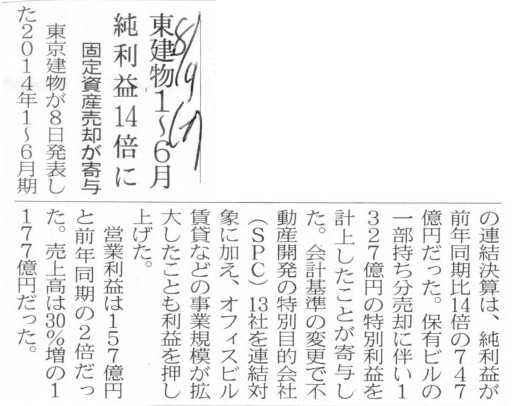 8/9
東建物1〜6月
純利益14倍に
固定資産売却が寄与
　東京建物が8日発表し
た2014年1〜6月期
の連結決算は、純利益が
前年同期比14倍の747
億円だった。保有ビルの
一部持ち分売却に伴い1
327億円の特別利益を
計上したことが寄与し
た。会計基準の変更で不
動産開発の特別目的会社
（SPC）13社を連結対
象に加え、オフィスビル
賃貸などの事業規模が拡
大したことも利益を押し
上げた。
　営業利益は157億円
と前年同期の2倍だっ
た。売上高は30%増の1
177億円だった。